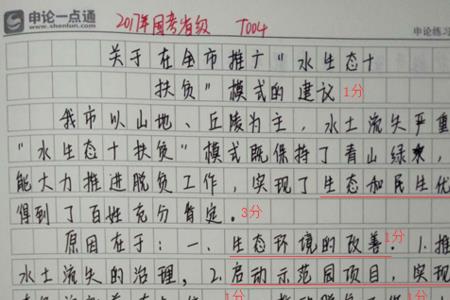 申论一点通
www.shenlun.com
2017年国考省级 T004
申论练习
关于在全市推广"水生态十
扶贫"模式的建议 1分
我市以山地、丘陵为主，水土流失严重
"水生态十扶贫"模式既保持了青山绿水，
能大力推进脱贫工作，实现了生态和民生优
得到了百姓充分肯定。3分
原因在于：一、生态环境的改善。1分 1.推
水土流失的治理，2.启动示范园项目，实现
1分 1分